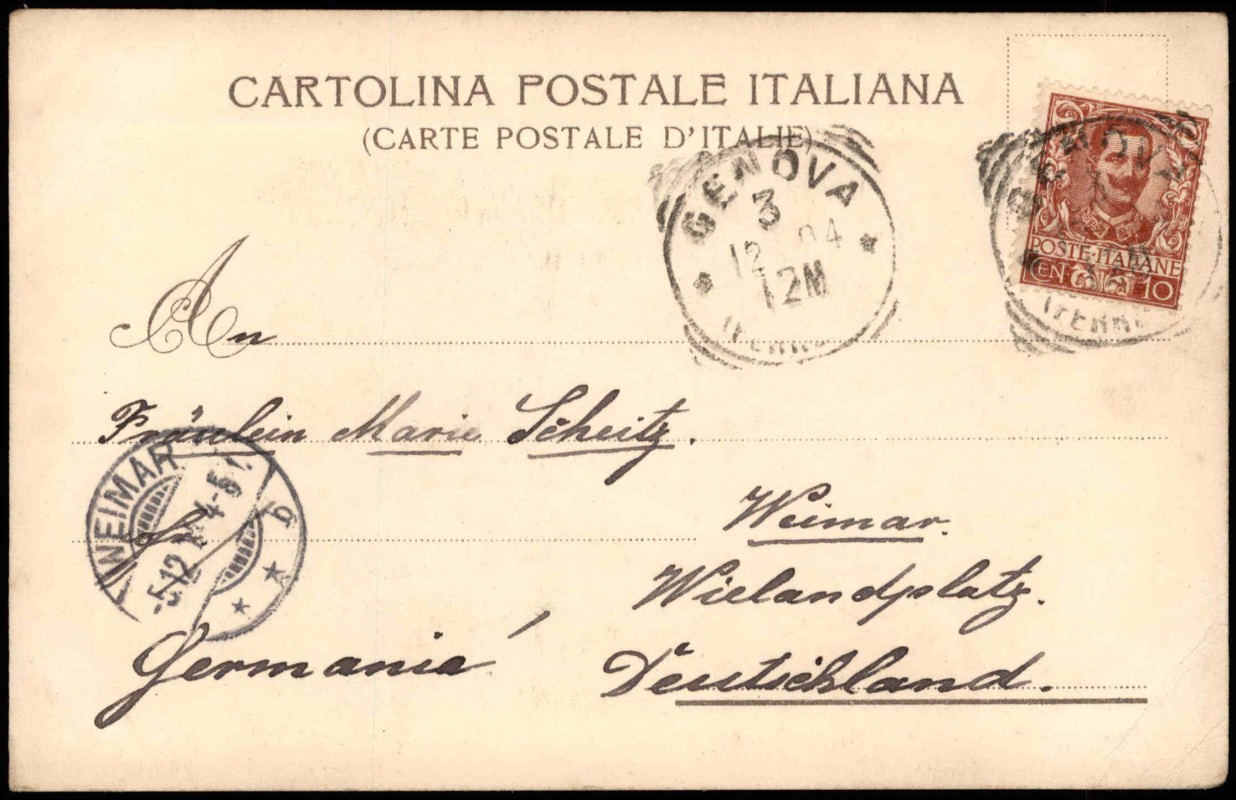 CARTOLINA POSTALE ITALIANA
(CARTE POSTALE D'ITALIE)
GENOVA
3
12 04
12M
(FERR
POSTE·ITALIANE
CEN 10
An
Fräulein Marie Scheitz.
WEIMAR
5.12
4-5
In
Weimar.
Wielandplatz.
Germania
Deutschland.